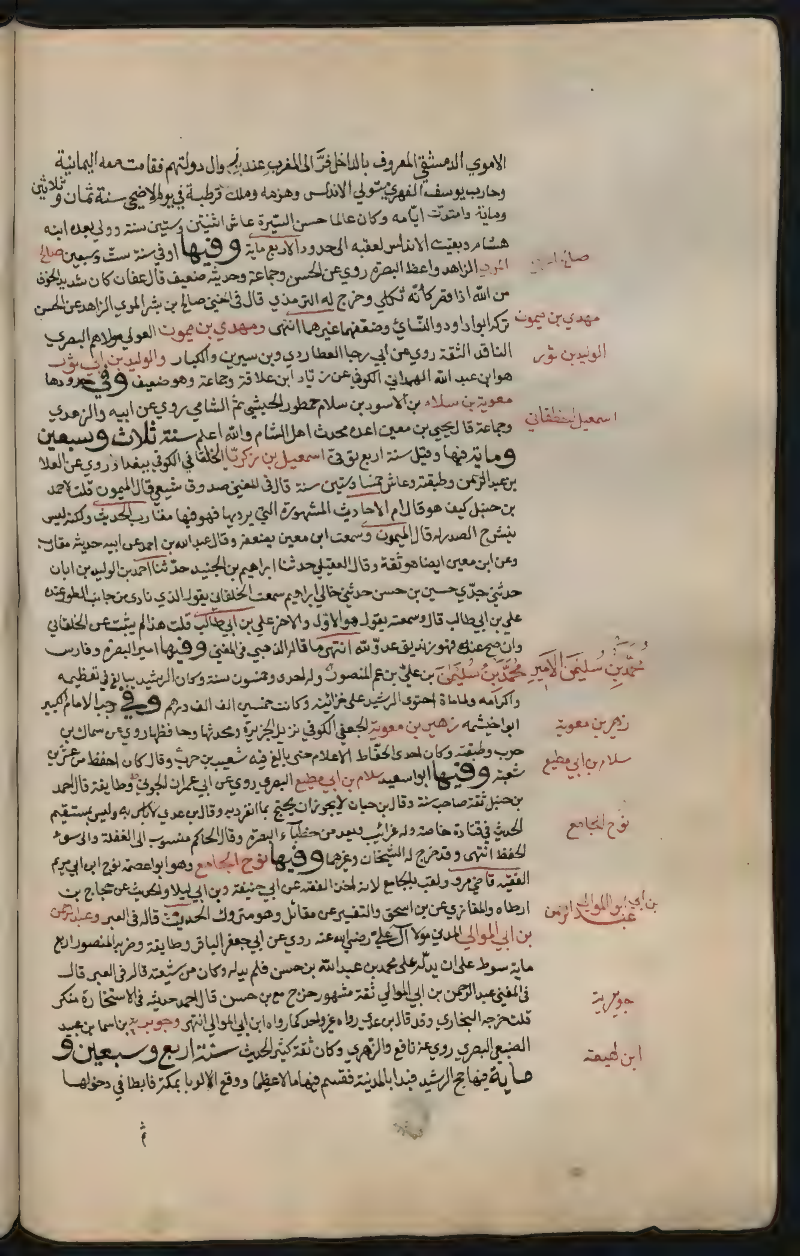 الاموي الدمشقي المعروف بالداخل فرّ الى المغرب عند زوال دولتهم فقامت معه اليمانية
وحارب يوسف الفهري متولي الاندلس وهزمه وملك قرطبة في يوم الاضحى سنة ثمان وثلاثين
ومائة وامتدت ايامه وكان عالما حسن السيرة عاش اثنتين وستين سنة وولي بعده ابنه
هشام وبقيت الاندلس لعقبه الى حدود الاربع ماية وفيها او في سنة ست وسبعين صالح
المري الزاهد واعظ البصرة روي عن الحسن وجماعة وحديثه ضعيف قال عفان كان شديد الخوف
من الله اذا قص كانه ثكلى وخرج له الترمذي قال في المغني صالح بن بشير المري الزاهد عن الحسن
تركه ابو داود والنسائي وضعفهما غيرهما انتهى ومهدي بن ميمون المعولي مولاهم البصري
الناقد الثقة روي عن ابي رجا العطاردي وبن سيرين والكبار والوليد بن ابي ثور
هو ابن عبد الله الهمداني الكوفي عن زياد ابن علاقة وجماعة وهو ضعيف وفي حدودها
معوية بن سلام بن الاسود بن سلام ممطور الحبشي ثم الشامي روي عن ابيه والزهري
وجماعة قال يحيي بن معين اعده محدث اهل الشام والله اعلم سنة ثلاث وسبعين
وماية فيها وقيل سنة اربع توفي اسمعيل بن زكريا الخلقاني الكوفي ببغداد روي عن العلا
بن عبد الرحمن وطبقته وعاش خمسا وستين سنة قال في المغني صدوق شيعي قال الميمون قلت لاحمد
بن حنبل كيف هو قال ام الاحاديث المشهورة التي يرويها فهو فيها مقارب الحديث ولكنه ليس
ينشرح الصدر له قال الميمون وسمعت ابن معين يضعفه وقال عبد الله بن احمد عن ابيه حديثه مقارب
وعن ابن معين ايضا هو ثقة وقال العقيلي حدثنا ابراهيم بن الجنيد حدثنا احمد بن الوليد بن ابان
حدثني حسين بن حسن حدثني خالي ابراهيم سمعت الخلقاني يقول الذي نادى من جانب الطور عبده
علي بن ابي طالب قال وسمعته يقول هو الاول والاخر علي بن ابي طالب قلت هذا لم يثبت عن الخلقاني
وان صح عنه فهو زنديق عدو لله انتهى ما قاله الذهبي في المغني وفيها امير البصرة وفارس
محمد بن سليمن بن علي بن عم المنصور وله احدى وخمسون سنة وكان الرشيد يبالغ في تعظيمه
واكرامه ولما مات احتوى الرشيد على خزائنه وكانت خمسين الف الف درهم وفي رجب الامام الكبير
ابو خيثمه زهير بن معوية الجعفي الكوفي نزيل الجزيرة ومحدثها وحافظها روي عن سماك بن
حرب وطبقته وكان احدى الحفاظ الاعلام حتى بالغ فيه شعيب بن حرب وقال كان احفظ من عشرين
شعبة وفيها ابو سعيد سلام بن ابي مطيع البصري روي عن ابي عمران الجوني وطايفة قال احمد
بن حنبل ثقة صاحب سنة وقال بن حبان لا يجوز ان يحتج بما انفرد به وقال بن عدي لا باس به وليس بمستقيم
الحديث في قتادة خاصة وله غرائب ويعد من خطباء البصرة وقال الحاكم منسوب الى الغفلة والى سوء
الحفظ انتهى وقد خرج له الشيخان وغيرهما وفيها نوح الجامع وهو ابو عصمة نوح ابن ابي مريم
الفقيه قاضي مرو ولقب بالجامع لانه اخذ الفقه عن ابي حنيفة وبن ابي ليلا والحديث عن حجاج بن
ارطاه والمغازي عن بن اسحق والتفسير عن مقاتل وهو متروك الحديث قاله في العبر وعبد الرحمن
بن ابي الموالي المدني مولا آل علي رضي الله عنه روي عن ابي جعفر الباقر وطايفة وضربه المنصور اربع
ماية سوط على ان يدله على محمد بن عبد الله بن حسن فلم يدله وكان من شيعته قاله في العبر قال
في المغني عبد الرحمن بن ابي الموالي ثقة مشهور خرج مع بن حسن قال احمد حديثه في الاستخارة منكر
قلت خرجه البخاري وقد قال بن عدي رواه غير واحد كما رواه ابن ابي الموالي انتهى وجويرية بن اسما بن عبيد
الضبعي البصري روي عن نافع والزهري وكان ثقة كثير الحديث سنة اربع وسبعين و
ماية فيها حج الرشيد فبدا بالمدينة فقسم فيها مالا عظيما ووقع الا لوبا بمكة فابطا في دخولها
صالح المري
مهدي بن ميمون
الوليد بن ثور
اسمعيل الخلقاني
محمد بن سليمن الامير
زهير بن معوية
سلام بن ابي مطيع
نوح الجامع
بن ابي الموالي عبد الرحمن
جويرية
ابن لهيعة